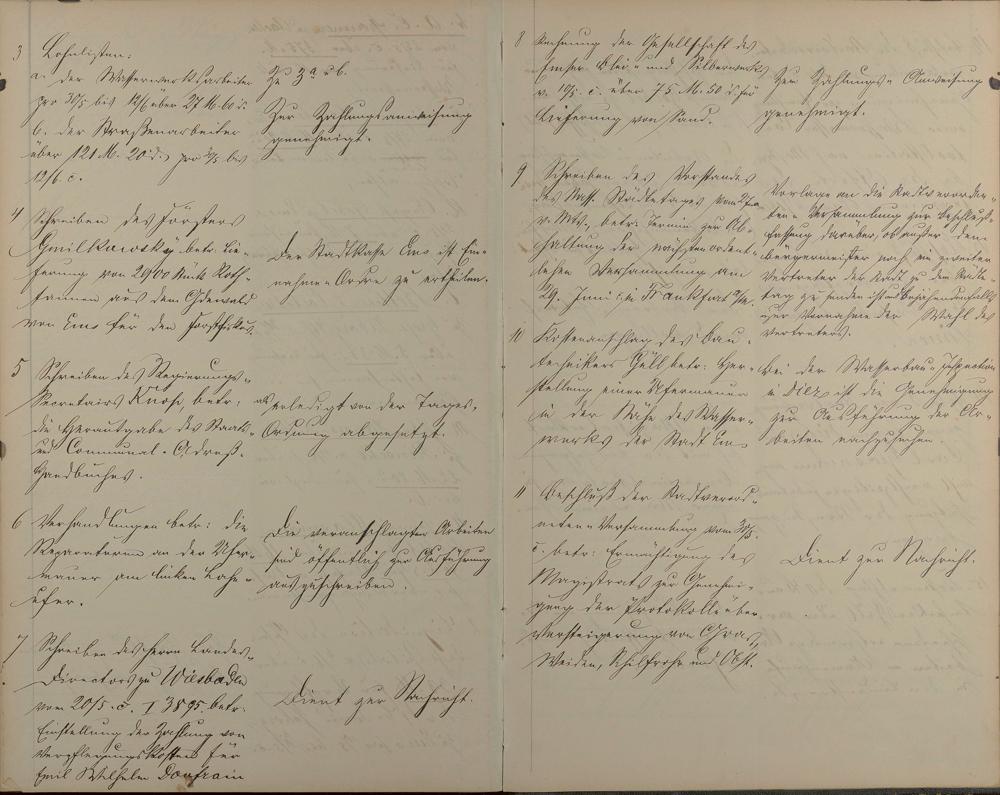 3 Lohnlisten:
a. der Wasserwerksarbeiter
pro 30/5 bis 12/6 über 27 M. 60 d.
b. der Straßenarbeiter
über 121 M. 20 d. pro bis
12/6. c.
Zu 3a u b.
Zur Zahlungsanweisung
genehmigt.
4 Schreiben des Försters
betr. Lie-
ferung von 2900 Stück Roth-
tannen aus dem
von Ems für den Forstfiskus.
Der Stadtkasse Ems ist Ein-
nahme-Ordre zu ertheilen.
5 Schreiben des Regierungs-
Secretairs Knosp, betr:
die Herausgabe des Staats-
und Communal-Adreß-
Handbuches.
als erledigt von der Tages-
Ordnung abgesetzt.
6 Verhandlungen betr: die
Reparaturen an der Ufer-
mauer am linken Lahn-
ufer.
Die veranschlagten Arbeiten
sind öffentlich zur Ausführung
auszuschreiben.
7 Schreiben des Herrn Landes-
Directors zu Wiesbaden
vom 20/5. c. I 3895. betr:
Einstellung der Zahlung von
Verpflegungskosten für
Emil Wilhelm
Dient zur Nachricht.
8 Rechnung der Gesellschaft des
Emser Blei- und Silberwerks
v. 19/5. c. über 75 M. 50 d. für
Lieferung von Sand.
Zur Zahlungs-Anweisung
genehmigt.
9 Schreiben des Vorstandes
des Nass. Städtetages vom
v. Mts., betr: Termin zur Ab-
haltung der nächsten ordent-
lichen Versammlung am
29. Juni c. in Frankfurt a/M.
Vorlage an die Stadtverordne-
ten-Versammlung zur Beschluß-
fassung darüber, ob außer dem
Bürgermeister noch ein zweiter
Vertreter der Stadt zu dem Städte-
tag zu senden ist und bejahendenfalls
zur Vornahme der Wahl des
Vertreters.
10 Kostenanschlag des Bau-
technikers Güll betr: Her-
stellung einer Ufermauer
in der Nähe des Wasser-
werks der Stadt Ems
Bei der Wasserbau-Inspection
in Diez ist die Genehmigung
zur Ausführung der Ar-
beiten nachzusuchen.
11 Beschluß der Stadtverord-
neten-Versammlung vom 30/5.
c. betr: Ermächtigung des
Magistrats zur Genehmi-
gung der Protokolle über
Versteigerung von Gras,
Weiden, Schilfrohr und Obst.
Dient zur Nachricht.